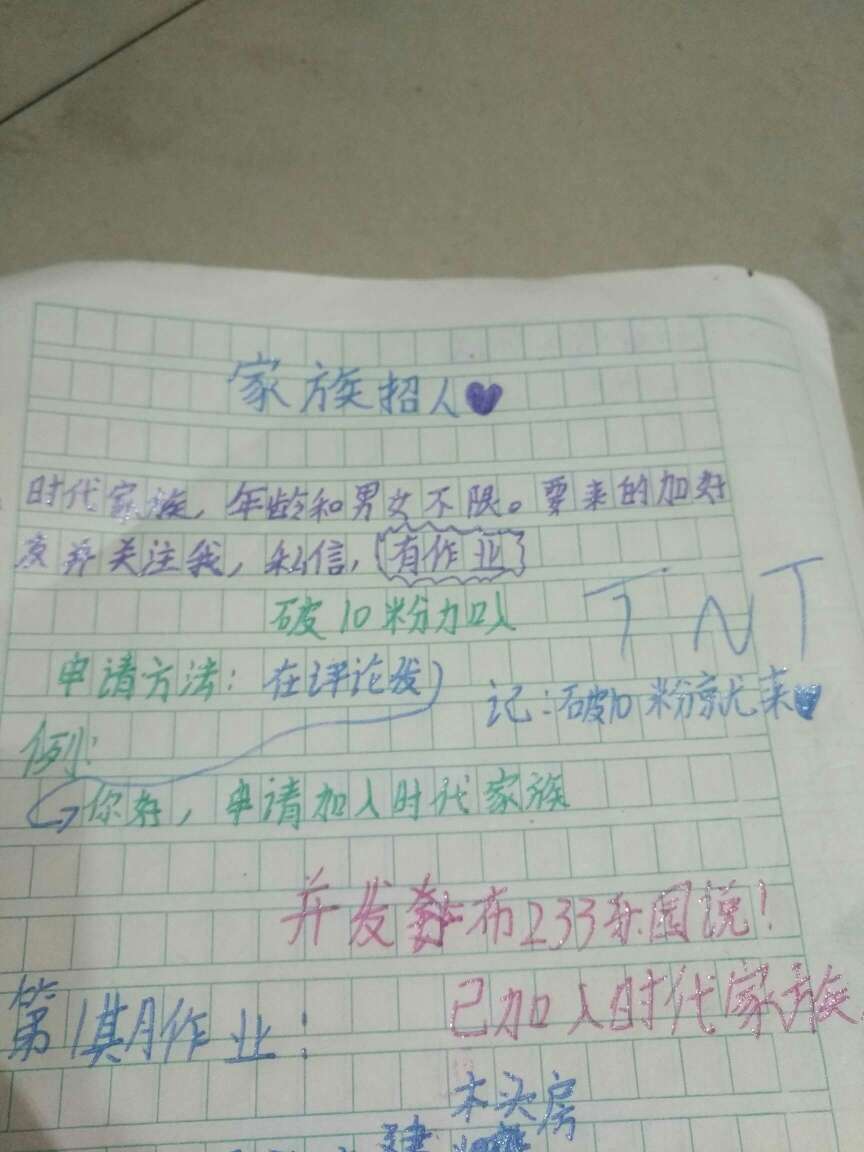 家族招人
时代家族，年龄和男女不限。要来的加好
友并关注我，私信，有作业
破10粉加入
TNT
申请方法：在评论发
记：破10粉就来
例：
你好，申请加入时代家族
并发布233乐园说！
已加入时代家族
第1期作业：
木头房
建